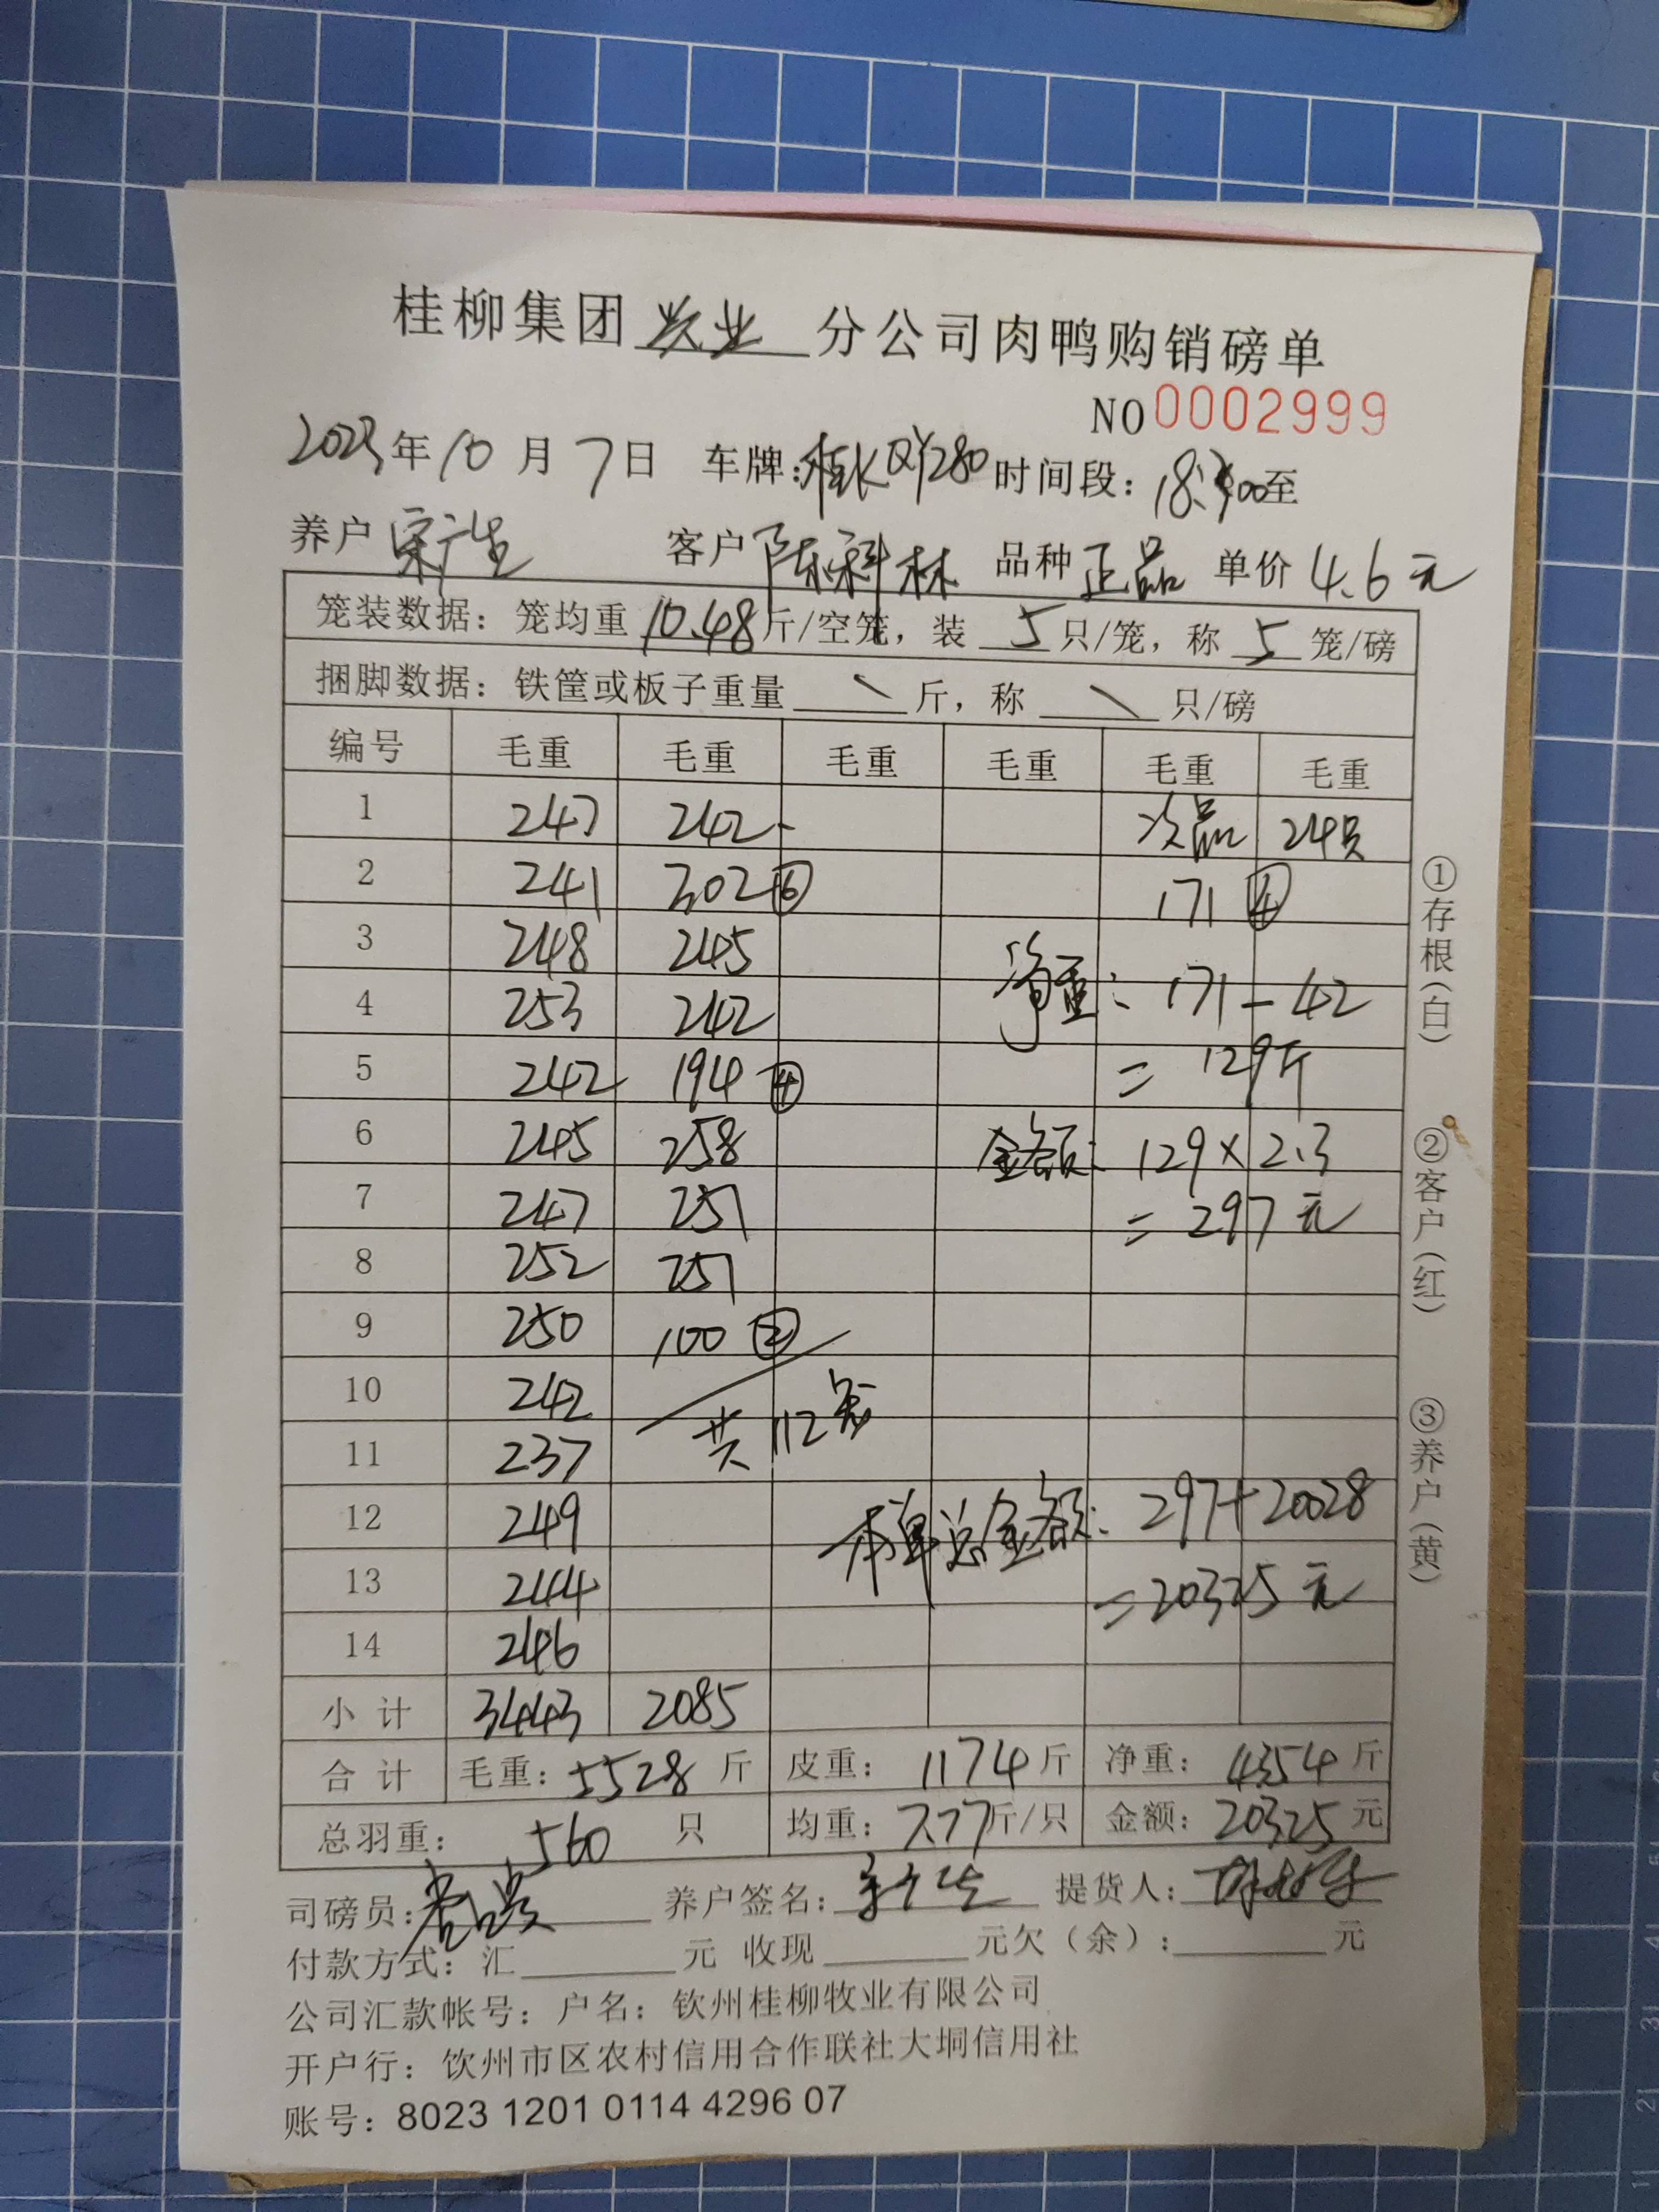 桂柳集团 兴业 分公司肉鸭购销磅单
NO 0002999
2023年10月7日 车牌：桂K 280 时间段：18:00至
养户 宋广生 客户 陈科林 品种 正品 单价 4.6元
笼装数据：笼均重 10.48斤/空笼，装 5 只/笼，称 5 笼/磅
捆脚数据：铁筐或板子重量 \ 斤，称 \ 只/磅
编号 毛重 毛重 毛重 毛重 毛重 毛重
1 247 242 次品 24只
2 241 302⑥ 171 ④
3 248 245
4 253 242 净重：171-42
5 242 194④ =129斤
6 245 258 金额：129×2.3
7 247 251 =297元
8 252 251
9 250 100②
10 242
11 237 共112笼
12 249 本单总金额：297+20028
13 244 =20325元
14 246
小计 3443 2085
合计 毛重：5528斤 皮重：1174斤 净重：4354斤
总羽重：560 只 均重：7.77斤/只 金额：20325元
司磅员： 养户签名： 提货人：
付款方式：汇 元 收现 元欠（余）： 元
公司汇款帐号：户名：钦州桂柳牧业有限公司
开户行：钦州市区农村信用合作联社大垌信用社
账号：8023 1201 0114 4296 07
①存根（白）
②客户（红）
③养户（黄）